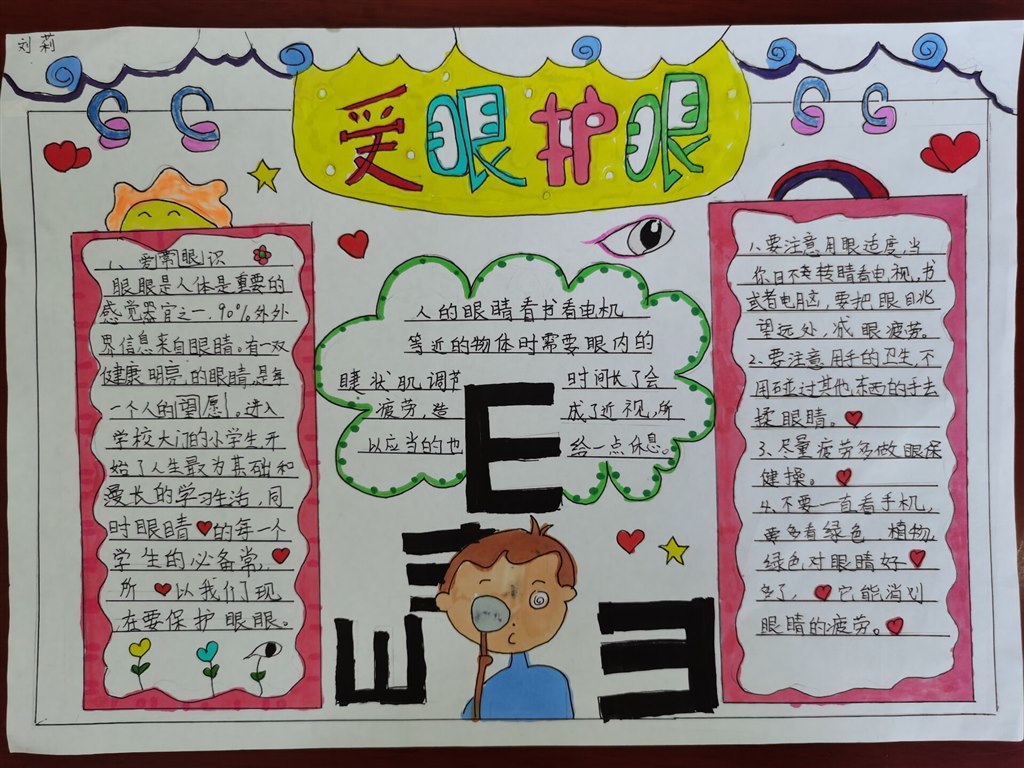 刘莉
爱眼护眼
1、爱常眼识
眼眼是人体是重要的
感觉器官之一.90%外外
界信息来自眼睛。有一双
健康明亮,的眼睛,是每
一个人的望愿。进入
学校大门的小学生,开
始了人生最为基础和
漫长的学习生活,同
时眼睛的每一个
学生的必备常,
所以我们了现
在要保护眼眼。
人的眼睛看书看电机
等近的物体时需要眼内的
睫状肌,调节时间长了会
疲劳,造成了近视,所
以应当的也给一点休息。
1.要注意用眼适度,当
你日不转睛看电视,书
或者电脑,要把眼目兆
望远处,减眼疲劳。
2.要注意用手的卫生,不
用碰过其他东西的手去
揉眼睛。
3、尽量疲劳多做眼保
健操。
4.不要一直看手机,
要多看绿色植物,
绿色对眼睛好
多了,它能消划
眼睛的疲劳。
E
E
E
E